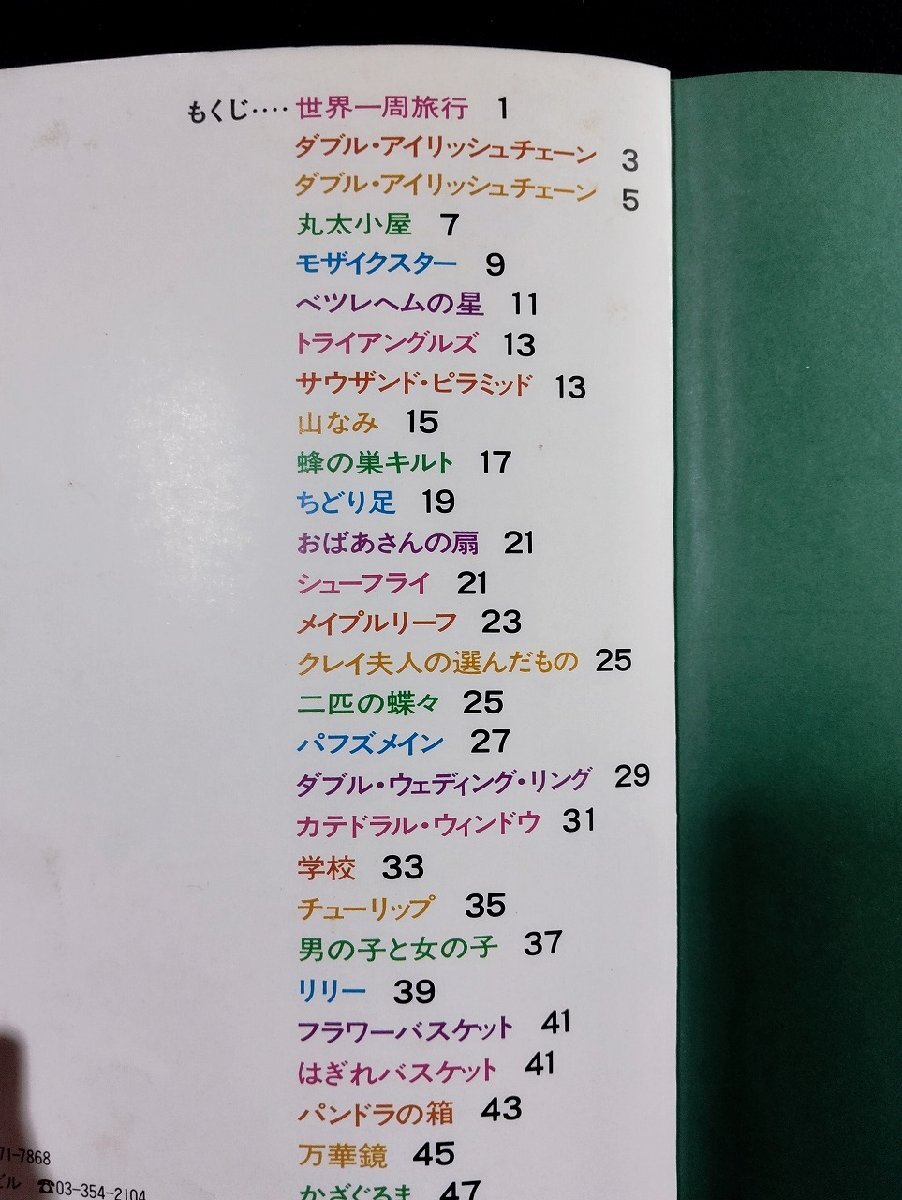 もくじ‥‥世界一周旅行 1
ダブル・アイリッシュチェーン 3
ダブル・アイリッシュチェーン 5
丸太小屋 7
モザイクスター 9
ベツレヘムの星 11
トライアングルズ 13
サウザンド・ピラミッド 13
山なみ 15
蜂の巣キルト 17
ちどり足 19
おばあさんの扇 21
シューフライ 21
メイプルリーフ 23
クレイ夫人の選んだもの 25
二匹の蝶々 25
パフズメイン 27
ダブル・ウェディング・リング 29
カテドラル・ウィンドウ 31
学校 33
チューリップ 35
男の子と女の子 37
リリー 39
フラワーバスケット 41
はぎれバスケット 41
パンドラの箱 43
万華鏡 45
かざぐるま 47
71-7868
ビル ☎03-354-2104